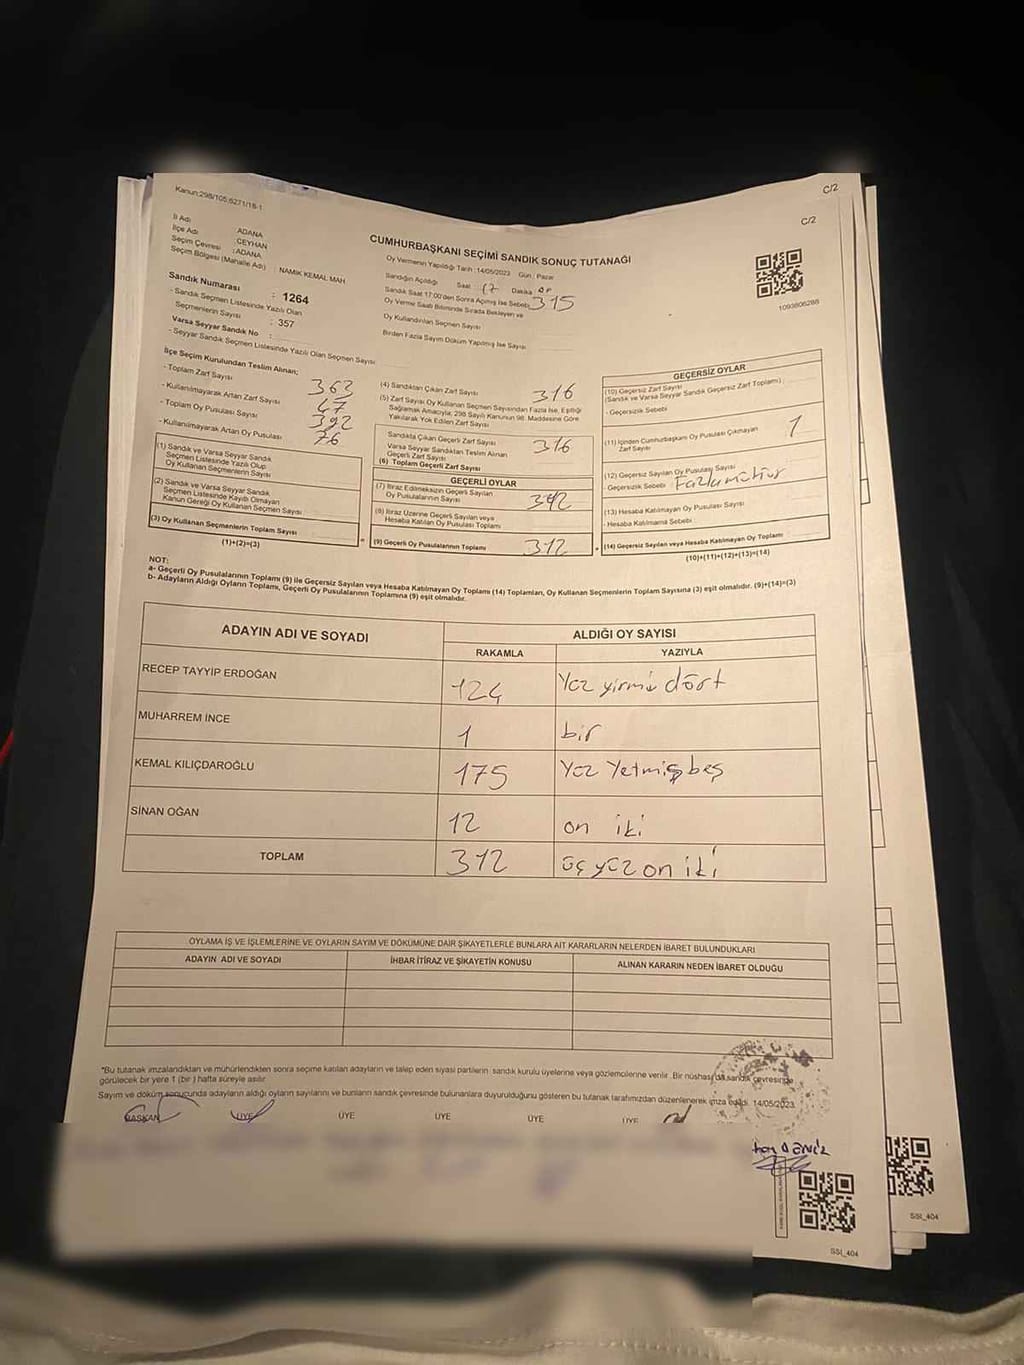 Kanun:298/105,6271/18-1
C/2
C/2
İl Adı : ADANA
İlçe Adı : CEYHAN
Seçim Çevresi : ADANA
Seçim Bölgesi (Mahalle Adı) : NAMIK KEMAL MAH
Sandık Numarası : 1264
- Sandık Seçmen Listesinde Yazılı Olan
Seçmenlerin Sayısı : 357
Varsa Seyyar Sandık No :
- Seyyar Sandık Seçmen Listesinde Yazılı Olan Seçmen Sayısı
CUMHURBAŞKANI SEÇİMİ SANDIK SONUÇ TUTANAĞI
Oy Vermenin Yapıldığı Tarih : 14/05/2023 Gün : Pazar
Sandığın Açıldığı Saat : 17 Dakika :
Sandık Saat 17:00'den Sonra Açılmış İse Sebebi
Oy Verme Saati Bitiminde Sırada Bekleyen ve
315
Oy Kullandırılan Seçmen Sayısı
Birden Fazla Sayım Döküm Yapılmış İse Sayısı
1093806288
İlçe Seçim Kurulundan Teslim Alınan;
- Toplam Zarf Sayısı 363
- Kullanılmayarak Artan Zarf Sayısı 47
- Toplam Oy Pusulası Sayısı 392
- Kullanılmayarak Artan Oy Pusulası 76
(1) Sandık ve Varsa Seyyar Sandık
Seçmen Listesinde Yazılı Olup
Oy Kullanan Seçmenlerin Sayısı
(2) Sandık ve Varsa Seyyar Sandık
Seçmen Listesinde Kayıtlı Olmayan
Kanun Gereği Oy Kullanan Seçmen Sayısı
(3) Oy Kullanan Seçmenlerin Toplam Sayısı
(1)+(2)=(3)
(4) Sandıktan Çıkan Zarf Sayısı 316
(5) Zarf Sayısı Oy Kullanan Seçmen Sayısından Fazla İse, Eşitliği
Sağlamak Amacıyla, 298 Sayılı Kanunun 98. Maddesine Göre
Yakılarak Yok Edilen Zarf Sayısı
Sandıkta Çıkan Geçerli Zarf Sayısı 316
Varsa Seyyar Sandıktan Teslim Alınan
Geçerli Zarf Sayısı
(6) Toplam Geçerli Zarf Sayısı
GEÇERLİ OYLAR
(7) İtiraz Edilmeksizin Geçerli Sayılan
Oy Pusulalarının Sayısı 312
(8) İtiraz Üzerine Geçerli Sayılan veya
Hesaba Katılan Oy Pusulası Toplamı
(9) Geçerli Oy Pusulalarının Toplamı 312
GEÇERSİZ OYLAR
(10) Geçersiz Zarf Sayısı
(Sandık ve Varsa Seyyar Sandık Geçersiz Zarf Toplamı)
- Geçersizlik Sebebi
(11) İçinden Cumhurbaşkanı Oy Pusulası Çıkmayan
Zarf Sayısı 1
(12) Geçersiz Sayılan Oy Pusulası Sayısı
- Geçersizlik Sebebi : Fazla mühür
(13) Hesaba Katılmayan Oy Pusulası Sayısı
- Hesaba Katılmama Sebebi
(14) Geçersiz Sayılan veya Hesaba Katılmayan Oy Toplamı
(10)+(11)+(12)+(13)=(14)
NOT:
a- Geçerli Oy Pusulalarının Toplamı (9) ile Geçersiz Sayılan veya Hesaba Katılmayan Oy Toplamı (14) Toplamları, Oy Kullanan Seçmenlerin Toplam Sayısına (3) eşit olmalıdır. (9)+(14)=(3)
b- Adayların Aldığı Oyların Toplamı, Geçerli Oy Pusulalarının Toplamına (9) eşit olmalıdır.
ADAYIN ADI VE SOYADI ALDIĞI OY SAYISI
RAKAMLA YAZIYLA
RECEP TAYYİP ERDOĞAN 124 Yüz yirmi dört
MUHARREM İNCE 1 bir
KEMAL KILIÇDAROĞLU 175 Yüz Yetmiş beş
SİNAN OĞAN 12 on iki
TOPLAM 312 üç yüz on iki
OYLAMA İŞ VE İŞLEMLERİNE VE OYLARIN SAYIM VE DÖKÜMÜNE DAİR ŞİKAYETLERLE BUNLARA AİT KARARLARIN NELERDEN İBARET BULUNDUKLARI
ADAYIN ADI VE SOYADI İHBAR İTİRAZ VE ŞİKAYETİN KONUSU ALINAN KARARIN NEDEN İBARET OLDUĞU
*Bu tutanak imzalandıktan ve mühürlendikten sonra seçime katılan adayların ve talep eden siyasi partilerin sandık kurulu üyelerine veya gözlemcilerine verilir. Bir nüshası da sandık çevresinde
görülecek bir yere 1 (bir) hafta süreyle asılır.
Sayım ve döküm sonucunda adayların aldığı oyların sayılarını ve bunların sandık çevresinde bulunanlara duyurulduğunu gösteren bu tutanak tarafımızdan düzenlenerek imza edildi. 14/05/2023
BAŞKAN ÜYE ÜYE ÜYE ÜYE ÜYE
SSI_404
SSI_404